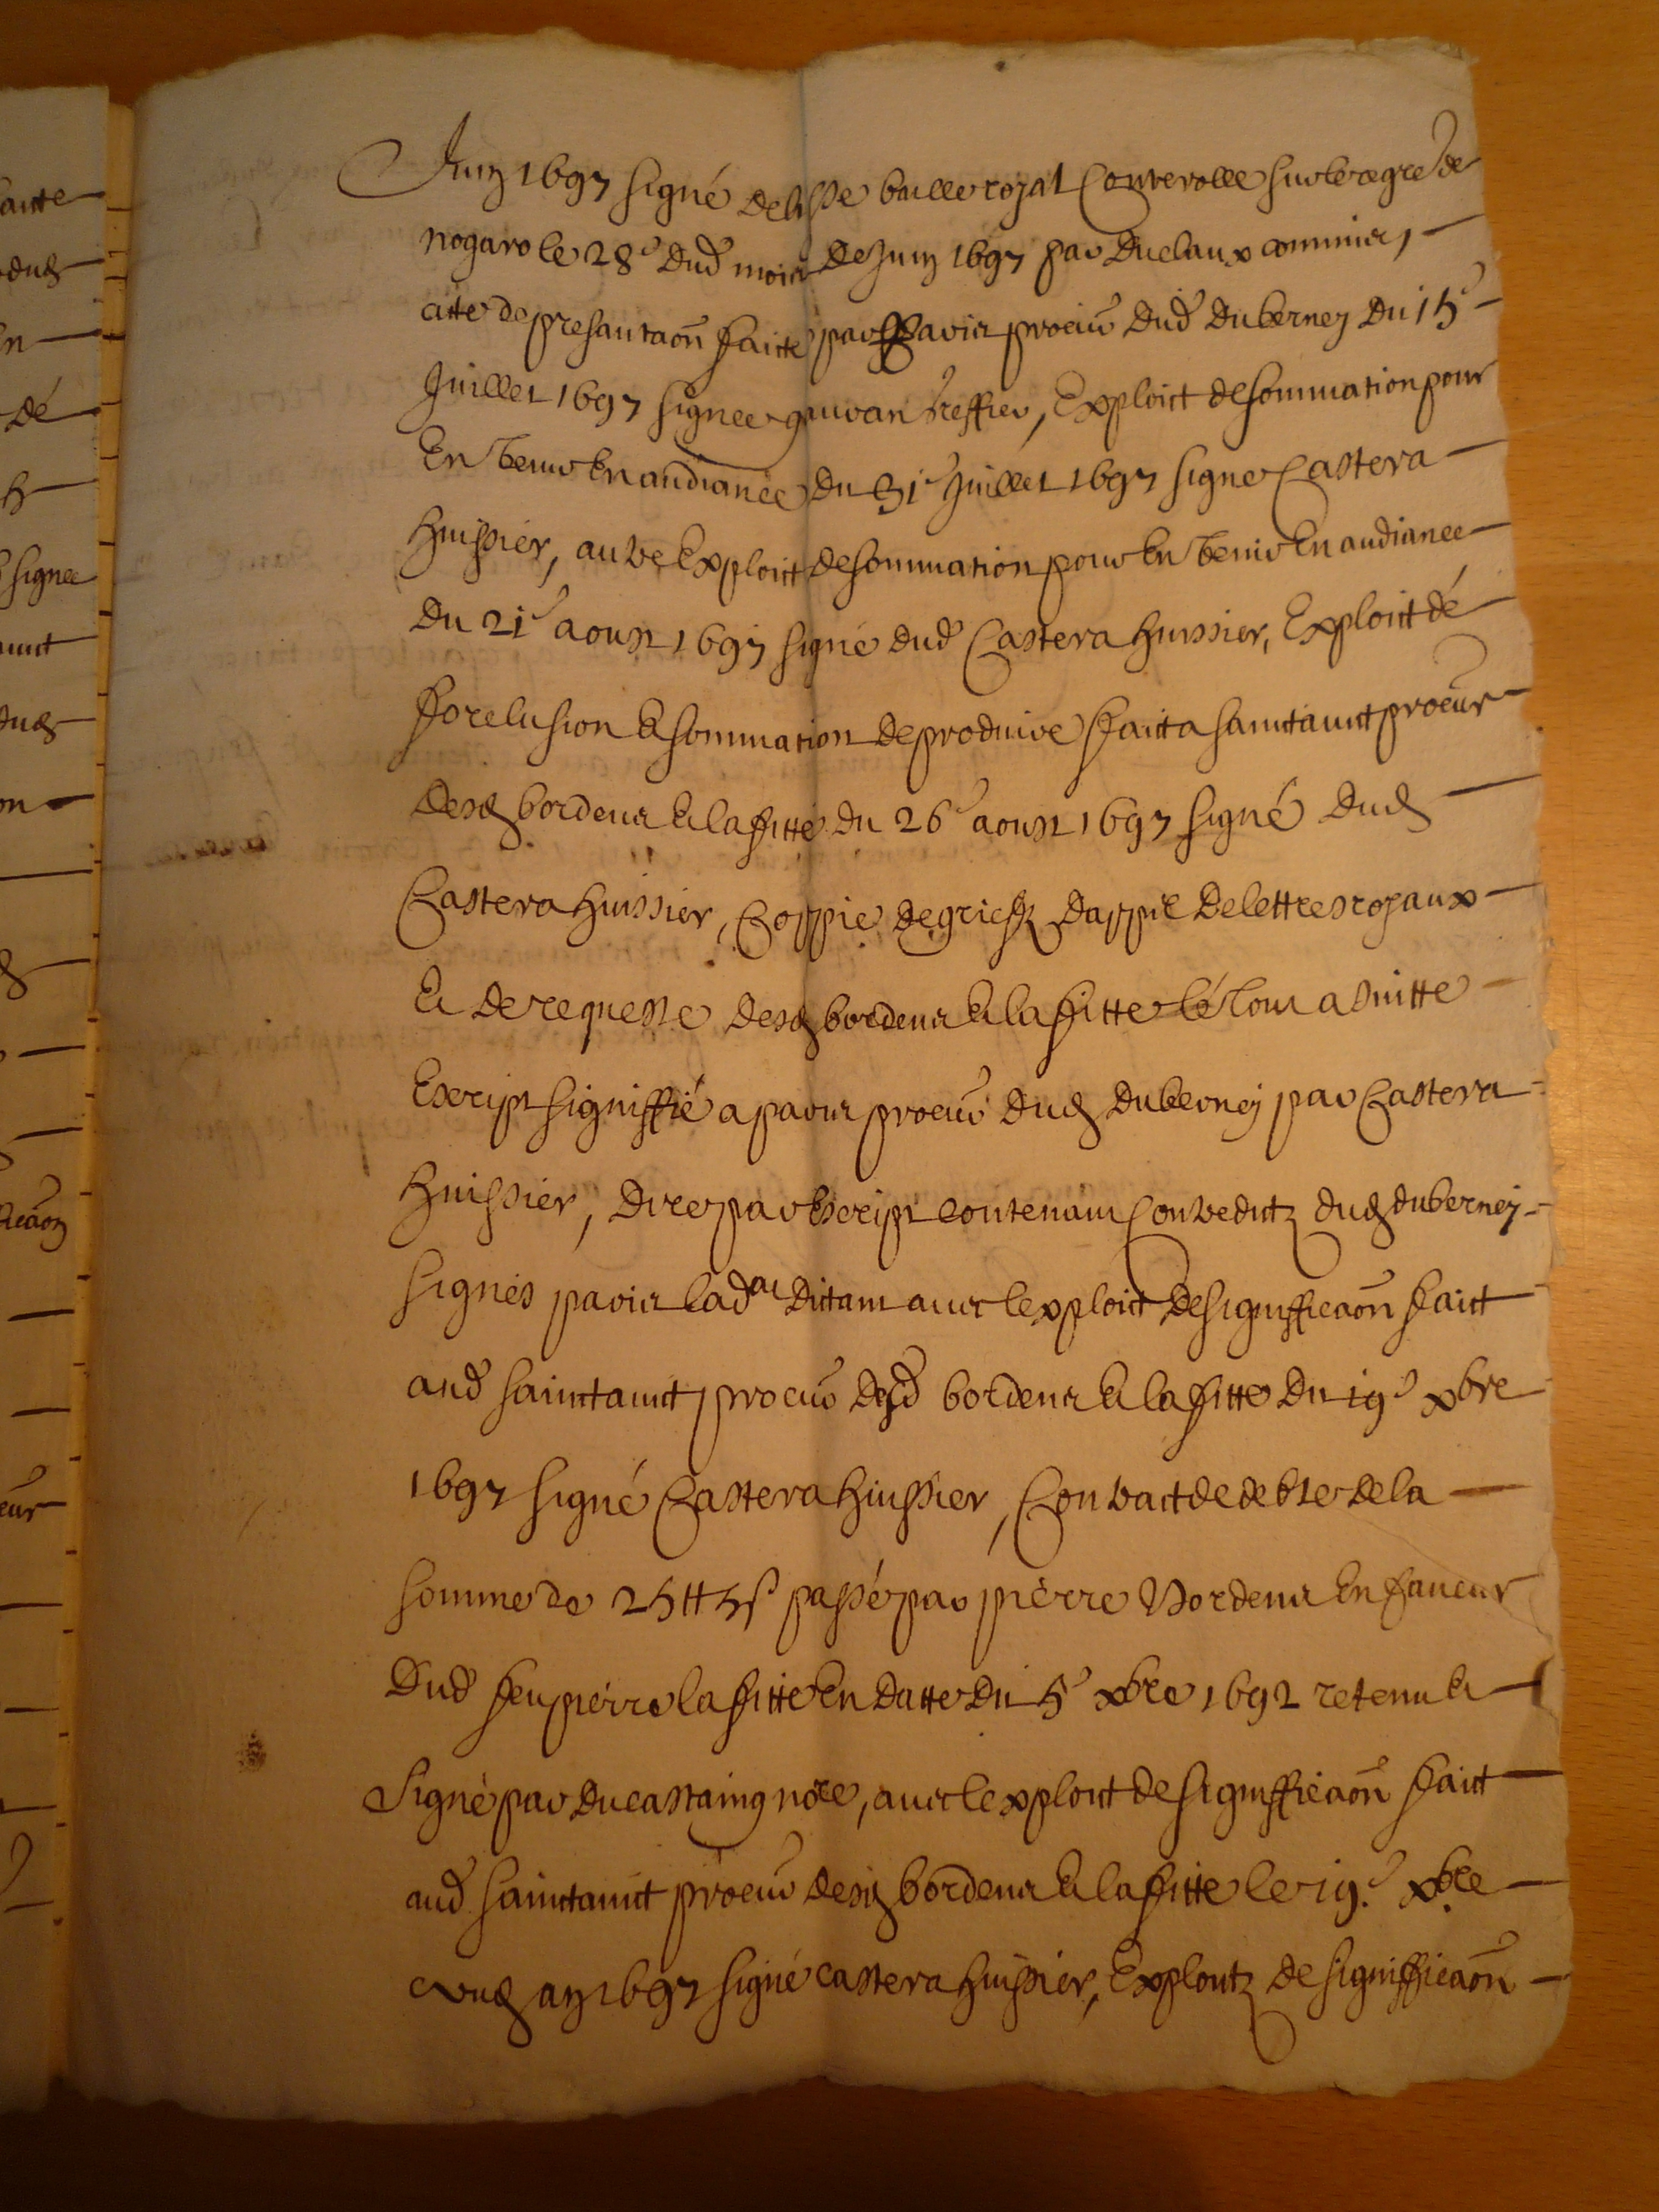 Juin 1697 signé delisse baille royal Controlle sur le regre de
nogaro le 28e dud mois de Juin 1697 par Duclaux commis,
atte de presantaon faitte par pavis procur dud duberney du 15e
Juillet 1697 signee greffier, Exploict de sommation pour
En venir En audiance du 31e Juillet 1697 signe Castera
huissier, autre Exploict de sommation pour En venir En audiance
du 21e aoust 1697 signé dud Castera huissier, Exploict de
forclusion Et sommation de produire faict a sainctaunct procur
desd bordeux Et lafitte du 26e aoust 1697 signé dud
Castera huissier, Coppie de griefz dappel de lettres royaux
Et de requeste desd bordeux Et lafitte le tout a suitte
Escript signiffié a pavis procur dud duberney par Castera
huissier, dire par escript contenant Contredictz dud duberney
signés pavis lad at dictam avec lexploict de signifficaon faict
aud sainctaunct procur desd bordeux Et lafitte du 19e xbre
1697 signé Castera huissier, Contract de debte de la
somme de 25tt 5s passé par pierre bordeux En faveur
dud feu pierre lafitte En datte du 5e xbre 1692 retenu Et
signé par ducastaing nore, avec lexploict de signifficaon faict
aud sainctaunct procur desd bordeux Et lafitte le 19e xbre
aud an 1697 signé castera huissier, Exploitz de signifficaon